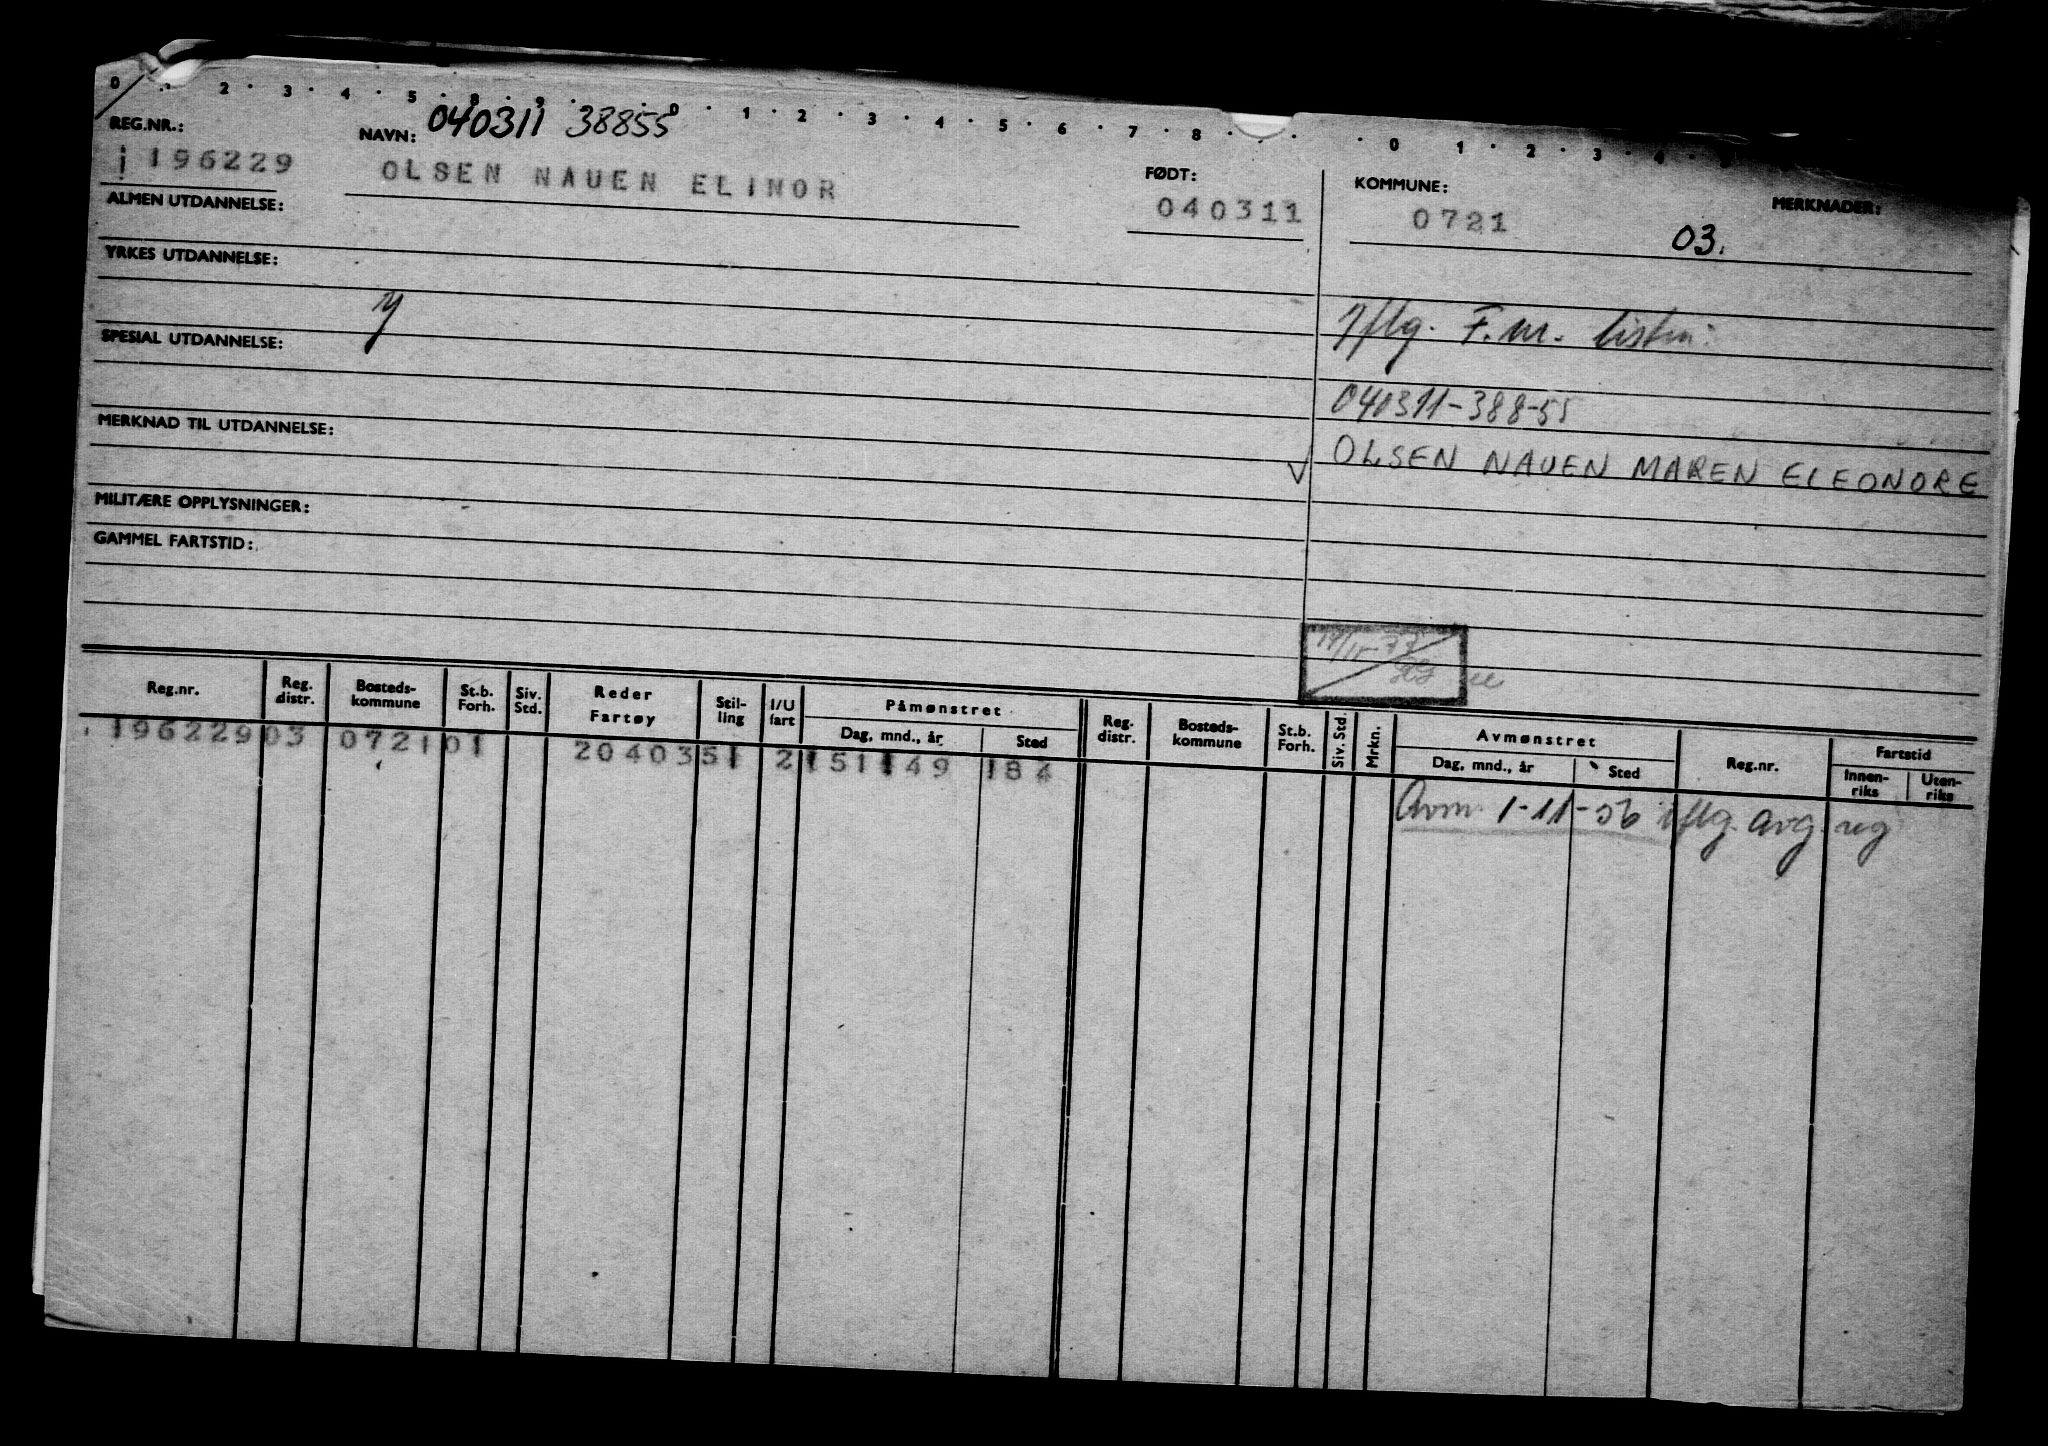 0 · 2 · 3 · 4 · 5 · 8 · 9 · · 0 · 1 · 2 · 3 · 4 · 5 · 6 · 7 · 8 · · · 0 · 1 · 2 · 3 · 4 ·
REG.NR.: NAVN: 040311 38855
196229 OLSEN NAUEN ELINOR FØDT: 040311 KOMMUNE: 0721 MERKNADER:
03.
ALMEN UTDANNELSE:
YRKES UTDANNELSE:
y Iflg. F.m. listen:
SPESIAL UTDANNELSE:
040311-388-55
MERKNAD TIL UTDANNELSE:
✓ OLSEN NAUEN MAREN ELEONORE
MILITÆRE OPPLYSNINGER:
GAMMEL FARTSTID:
Reg.nr. Reg. distr. Bosteds-kommune St.b. Forh. Siv. Std. Reder Fartøy Stil-ling I/U fart Påmønstret Dag, mnd., år Sted Reg. distr. Bosteds-kommune St.b. Forh. Siv. Std. Mrkn. Avmønstret Dag, mnd., år Sted Reg.nr. Fartstid Innen-riks Uten-riks
196229 03 0721 01 204035 1 2 151149 184
Avm. 1-11-56 iflg. avg. reg